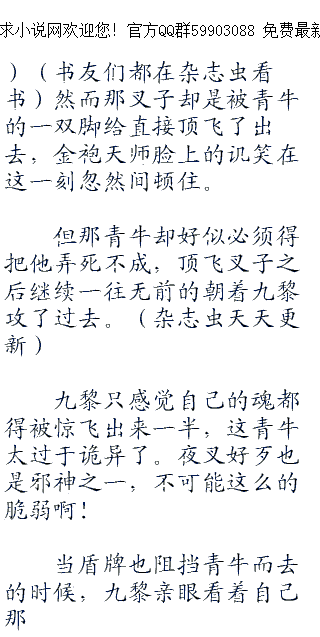 求小说网欢迎您！官方QQ群59903088 免费最新
）（书友们都在杂志虫看
书）然而那叉子却是被青牛
的一双脚给直接顶飞了出
去，金袍天师脸上的讥笑在
这一刻忽然间顿住。
但那青牛却好似必须得
把他弄死不成，顶飞叉子之
后继续一往无前的朝着九黎
攻了过去。（杂志虫天天更
新）
九黎只感觉自己的魂都
得被惊飞出来一半，这青牛
太过于诡异了。夜叉好歹也
是邪神之一，不可能这么的
脆弱啊！
当盾牌也阻挡青牛而去
的时候，九黎亲眼看着自己
那